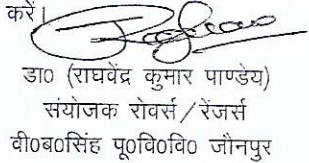 करें।
डा० (राघवेंद्र कुमार पाण्डेय)
संयोजक रोवर्स / रेंजर्स
वी०ब०सिंह पू०वि०वि० जौनपुर